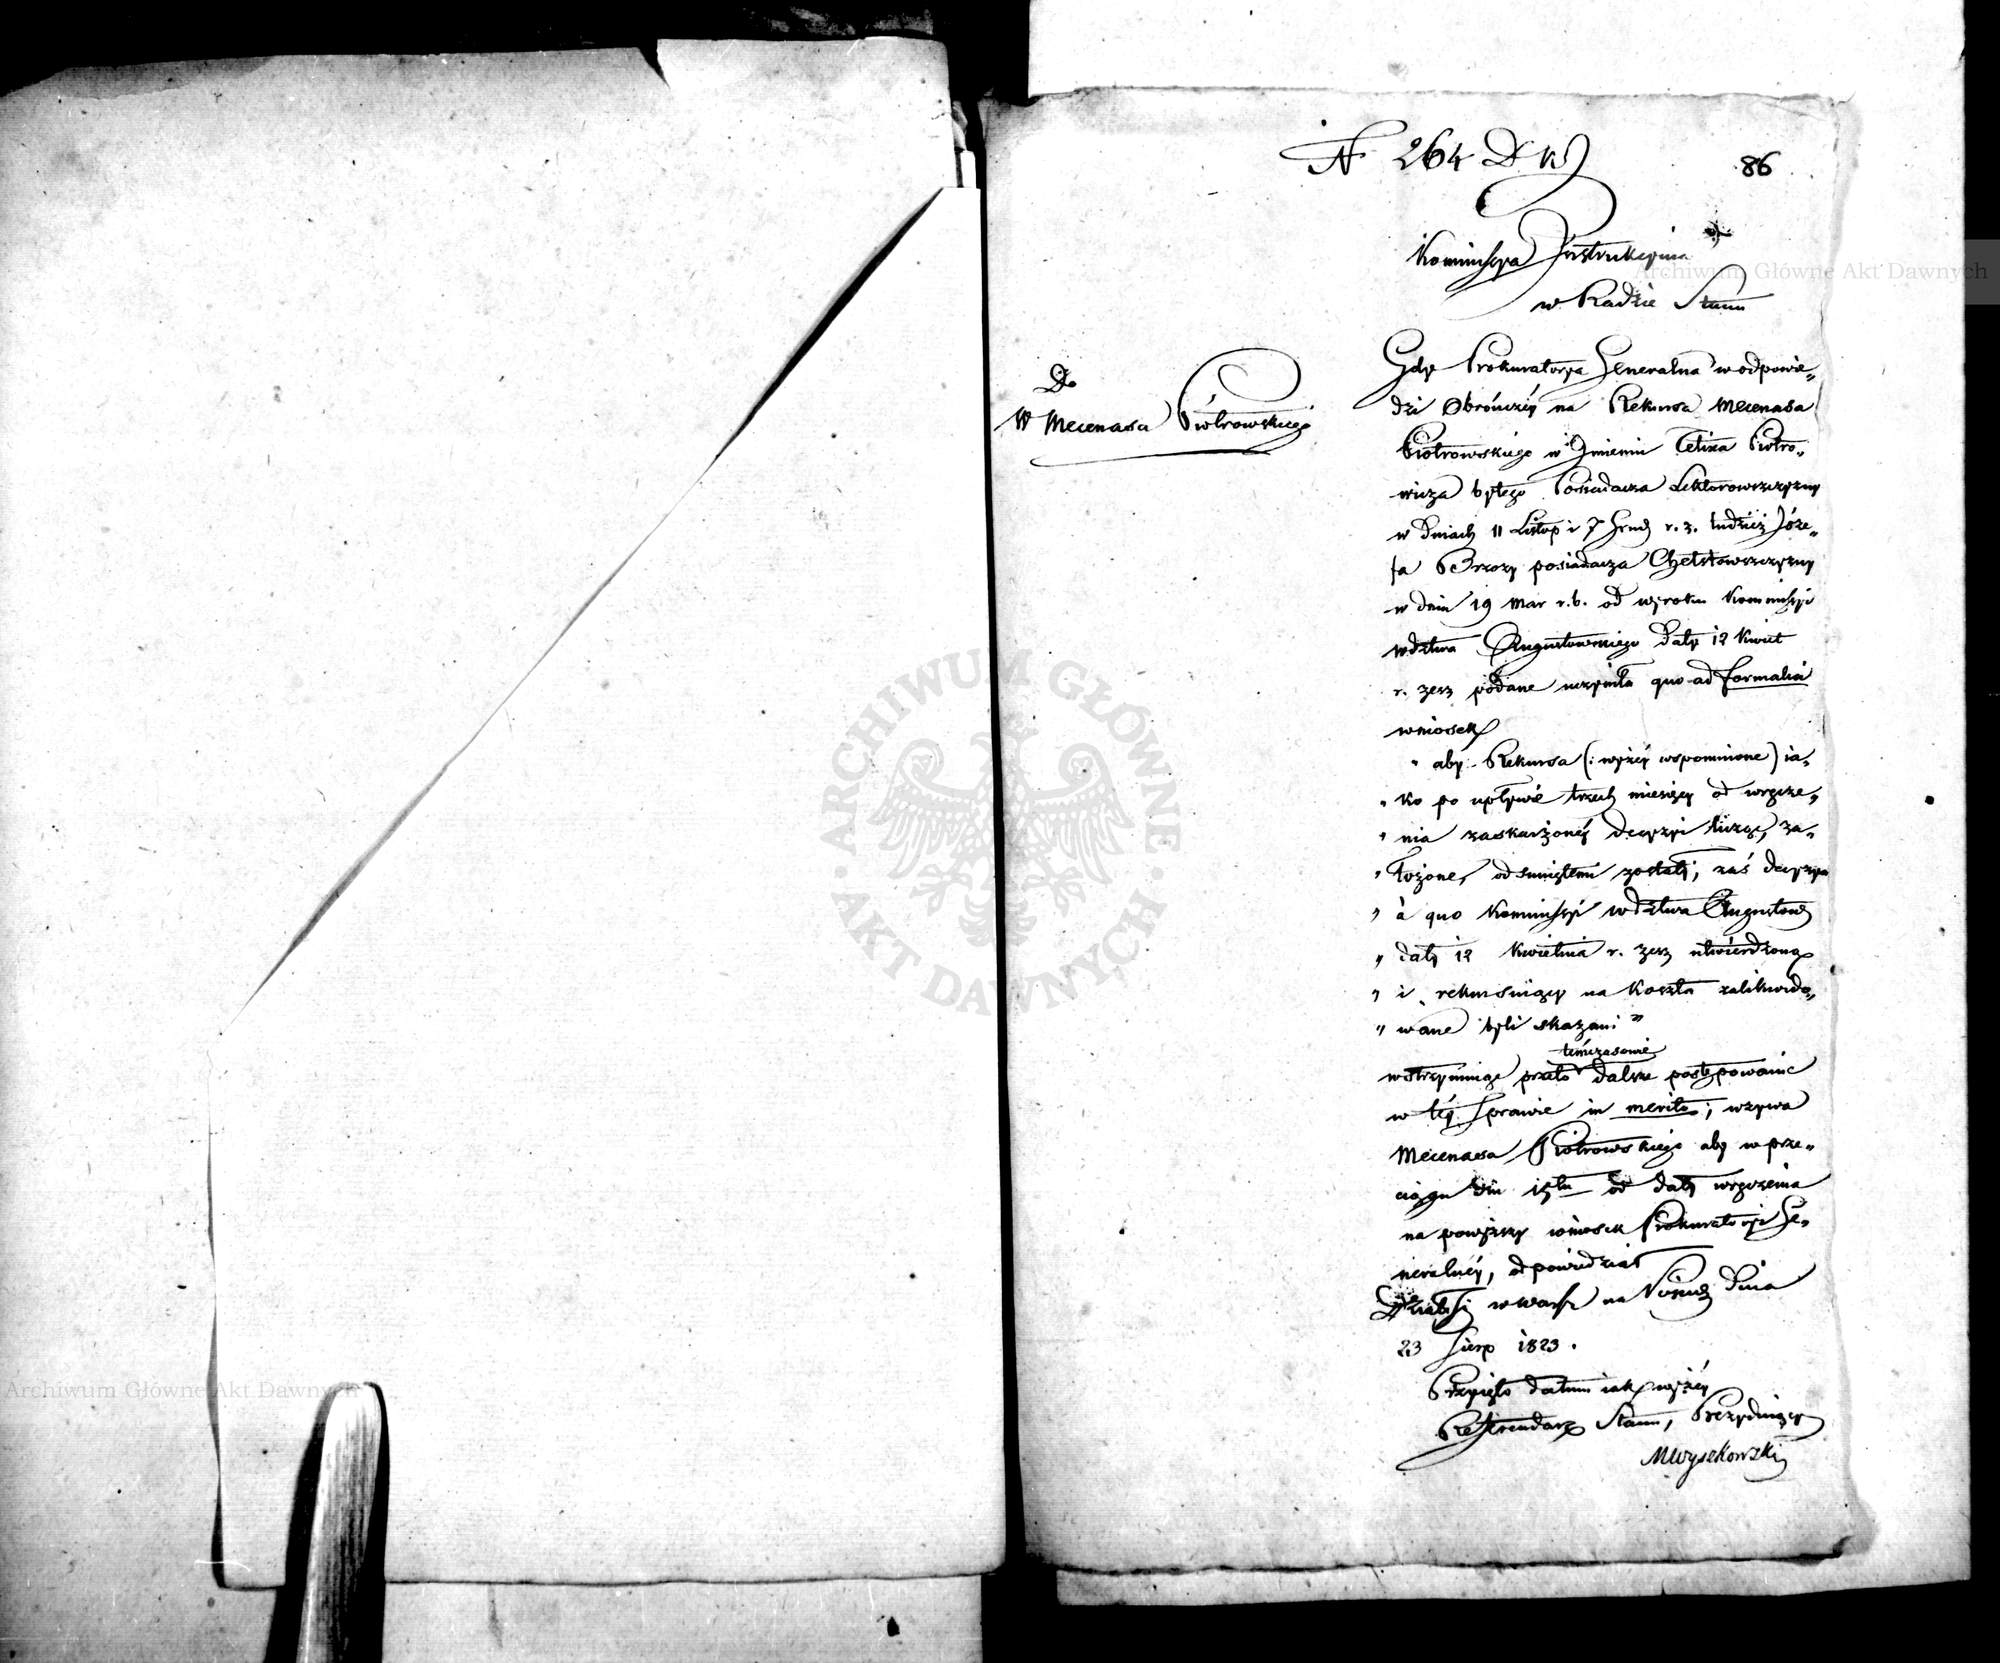 N 264 D W
86
Kommissya Instrukcyina
w Radzie Stanu
Do
W Mecenasa Piotrowskiego
Gdy Prokuratorya Generalna w odpowie„
dzi Obrończéy na Rekursa Mecenasa
Piotrowskiego w Imieniu Felixa Piotro„
wicza byłego Posiadacza Lektorowszczyzny
w Dniach 11 Listop i 7 Grud r. z. tudzież Józe„
fa Brzozy posiadacza Chełstowszczyzny
w dniu 19 Mar r. b. od wyroku Kommissyi
Wdztwa Augustowskiego Daty 12 Kwiet
r. zesz podane uczyniła quo ad formalia
wniosek
" aby Rekursa (: wyżéy wspomnione) ia„
" ko po upływie trzech miesięcy od wręcze„
" nia zaskarżonéy decyzyi licząc, za„
" łożone, odsuniętemi zostały, zaś decyzya
" à quo Kommissyi Wdztwa Augustow
" daty 12 Kwietnia r. zesz utwierdzoną
" i rekursuiący na koszta zalikwido„
" wane byli skazani "
témczasowie
wstrzymuiąc przeto dalsze postępowanie
w téy Sprawie in merito; wzywa
Mecenasa Piotrowskiego aby w prze„
ciągu dni 15tu od daty wręczenia
na powyższy wniosek Prokuratoryi Ge„
neralnéy, odpowiedział
Działo się w Warsz na Posiedz Dnia
23 Sierp 1823.
Przyięto datum iak wyżéy
Referendarz Stanu, Prezyduiący
MWyszkowski
ARCHIWUM GŁÓWNE AKT DAWNYCH
Archiwum Główne Akt Dawnych
Archiwum Główne Akt Dawnych